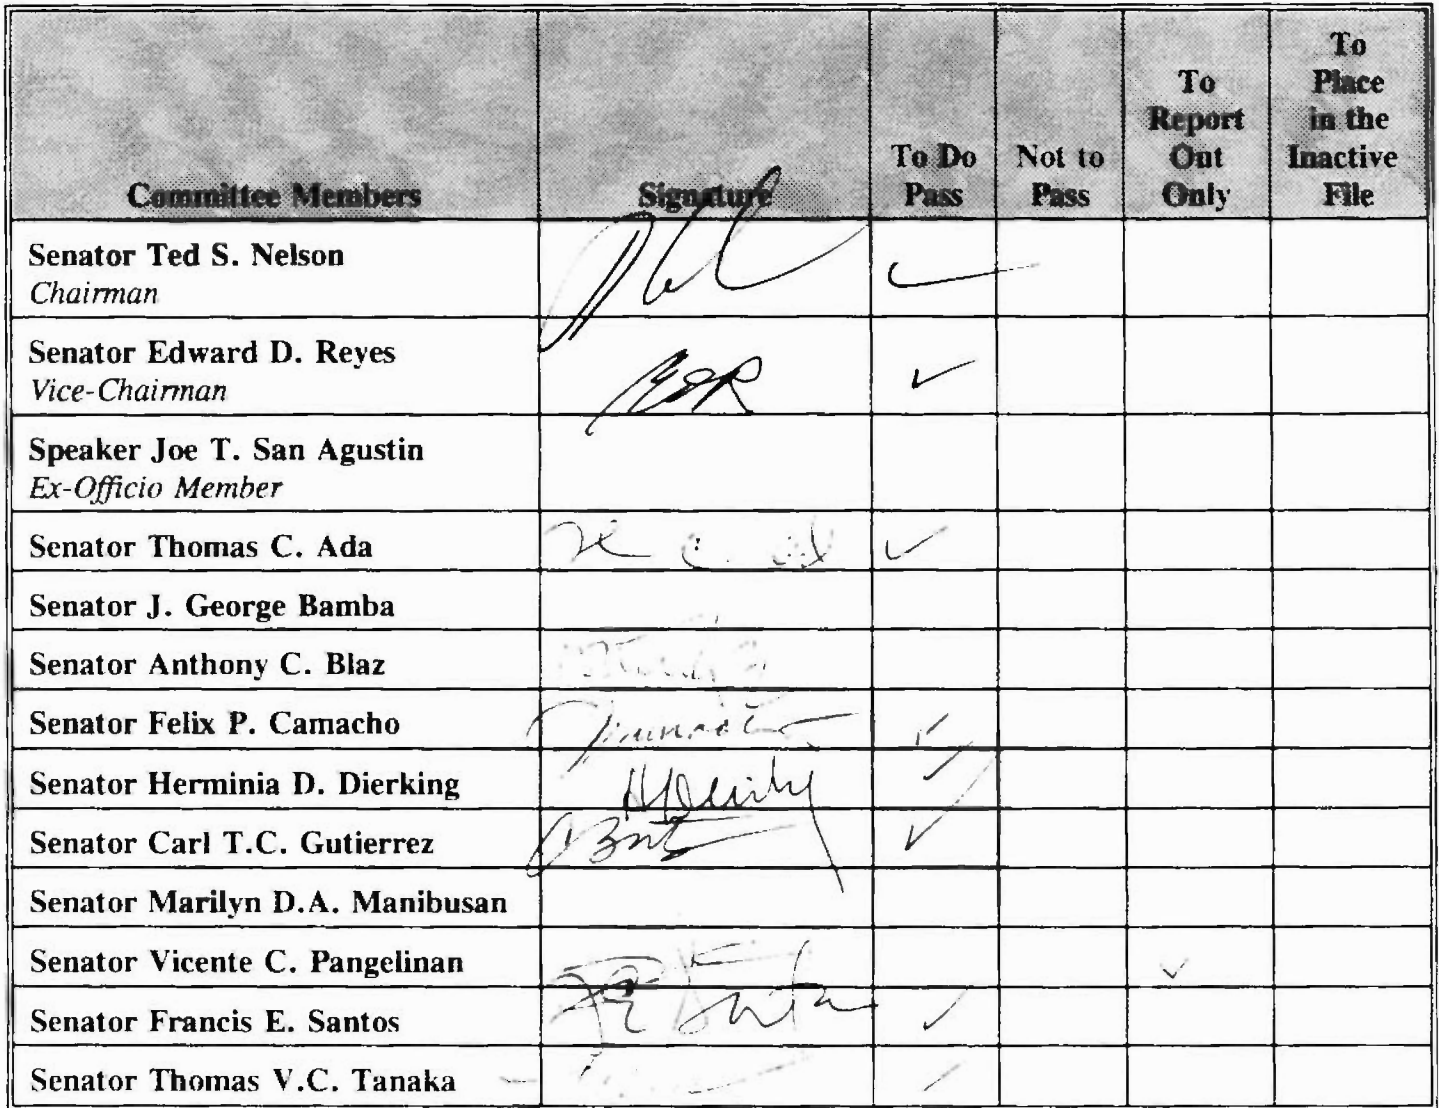 Committee Members Signature To Do Pass Not to Pass To Report Out Only To Place in the Inactive File
Senator Ted S. Nelson
Chairman
Senator Edward D. Reyes
Vice-Chairman
Speaker Joe T. San Agustin
Ex-Officio Member
Senator Thomas C. Ada ✓
Senator J. George Bamba
Senator Anthony C. Blaz
Senator Felix P. Camacho ✓
Senator Herminia D. Dierking ✓
Senator Carl T.C. Gutierrez ✓
Senator Marilyn D.A. Manibusan
Senator Vicente C. Pangelinan ✓
Senator Francis E. Santos ✓
Senator Thomas V.C. Tanaka ✓